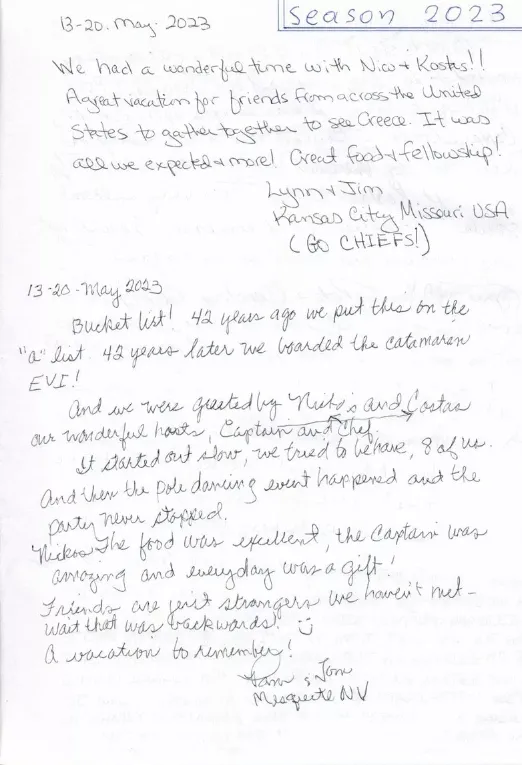 13-20. May. 2023
Season 2023
We had a wonderful time with Nico + Kostas!!
A great vacation for friends from across the United
States to gather together to see Greece. It was
all we expected + more! Great food + fellowship!
Lynn + Jim
Kansas City, Missouri USA
(GO CHIEFS!)
13-20-May 2023
Bucket list! 42 years ago we put this on the
"a" list. 42 years later we boarded the catamaran
EVI!
And we were greeted by Nicko's and Costas
our wonderful hosts, Captain and Chef.
It started out slow, we tried to behave, 8 of us.
And then the pole dancing event happened and the
party never stopped.
Nickos The food was excellent, the Captain was
amazing and everyday was a gift!
Friends are just strangers we haven't met -
wait that was backwards!
A vacation to remember!
Mesquite NV